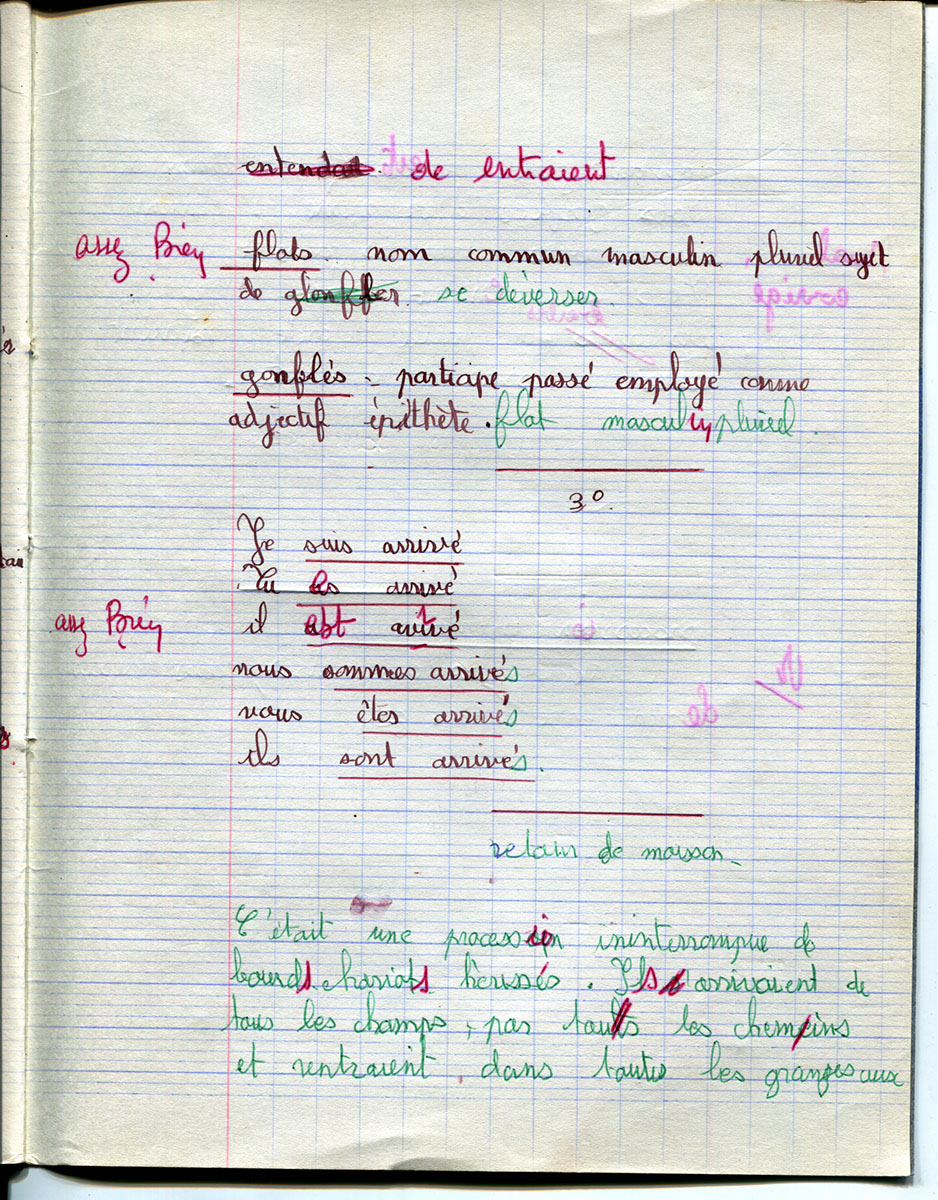 entendait. de entraient
assez Bien flots nom commun masculin pluriel sujet
de glonffer. se déverser.
gonflés - participe passé employé comme
adjectif épithète. flot masculin pluriel.
3°.
Je suis arrivé
Tu es arrivé
assez Bien il est arrivé
nous sommes arrivés
vous êtes arrivés
ils sont arrivés.
retour de moisson -
C'était une procession ininterrompue de
lourds chariots hérissés. Ils arrivaient de
tous les champs, par touts les chemins
et rentraient, dans toutes les granges aux